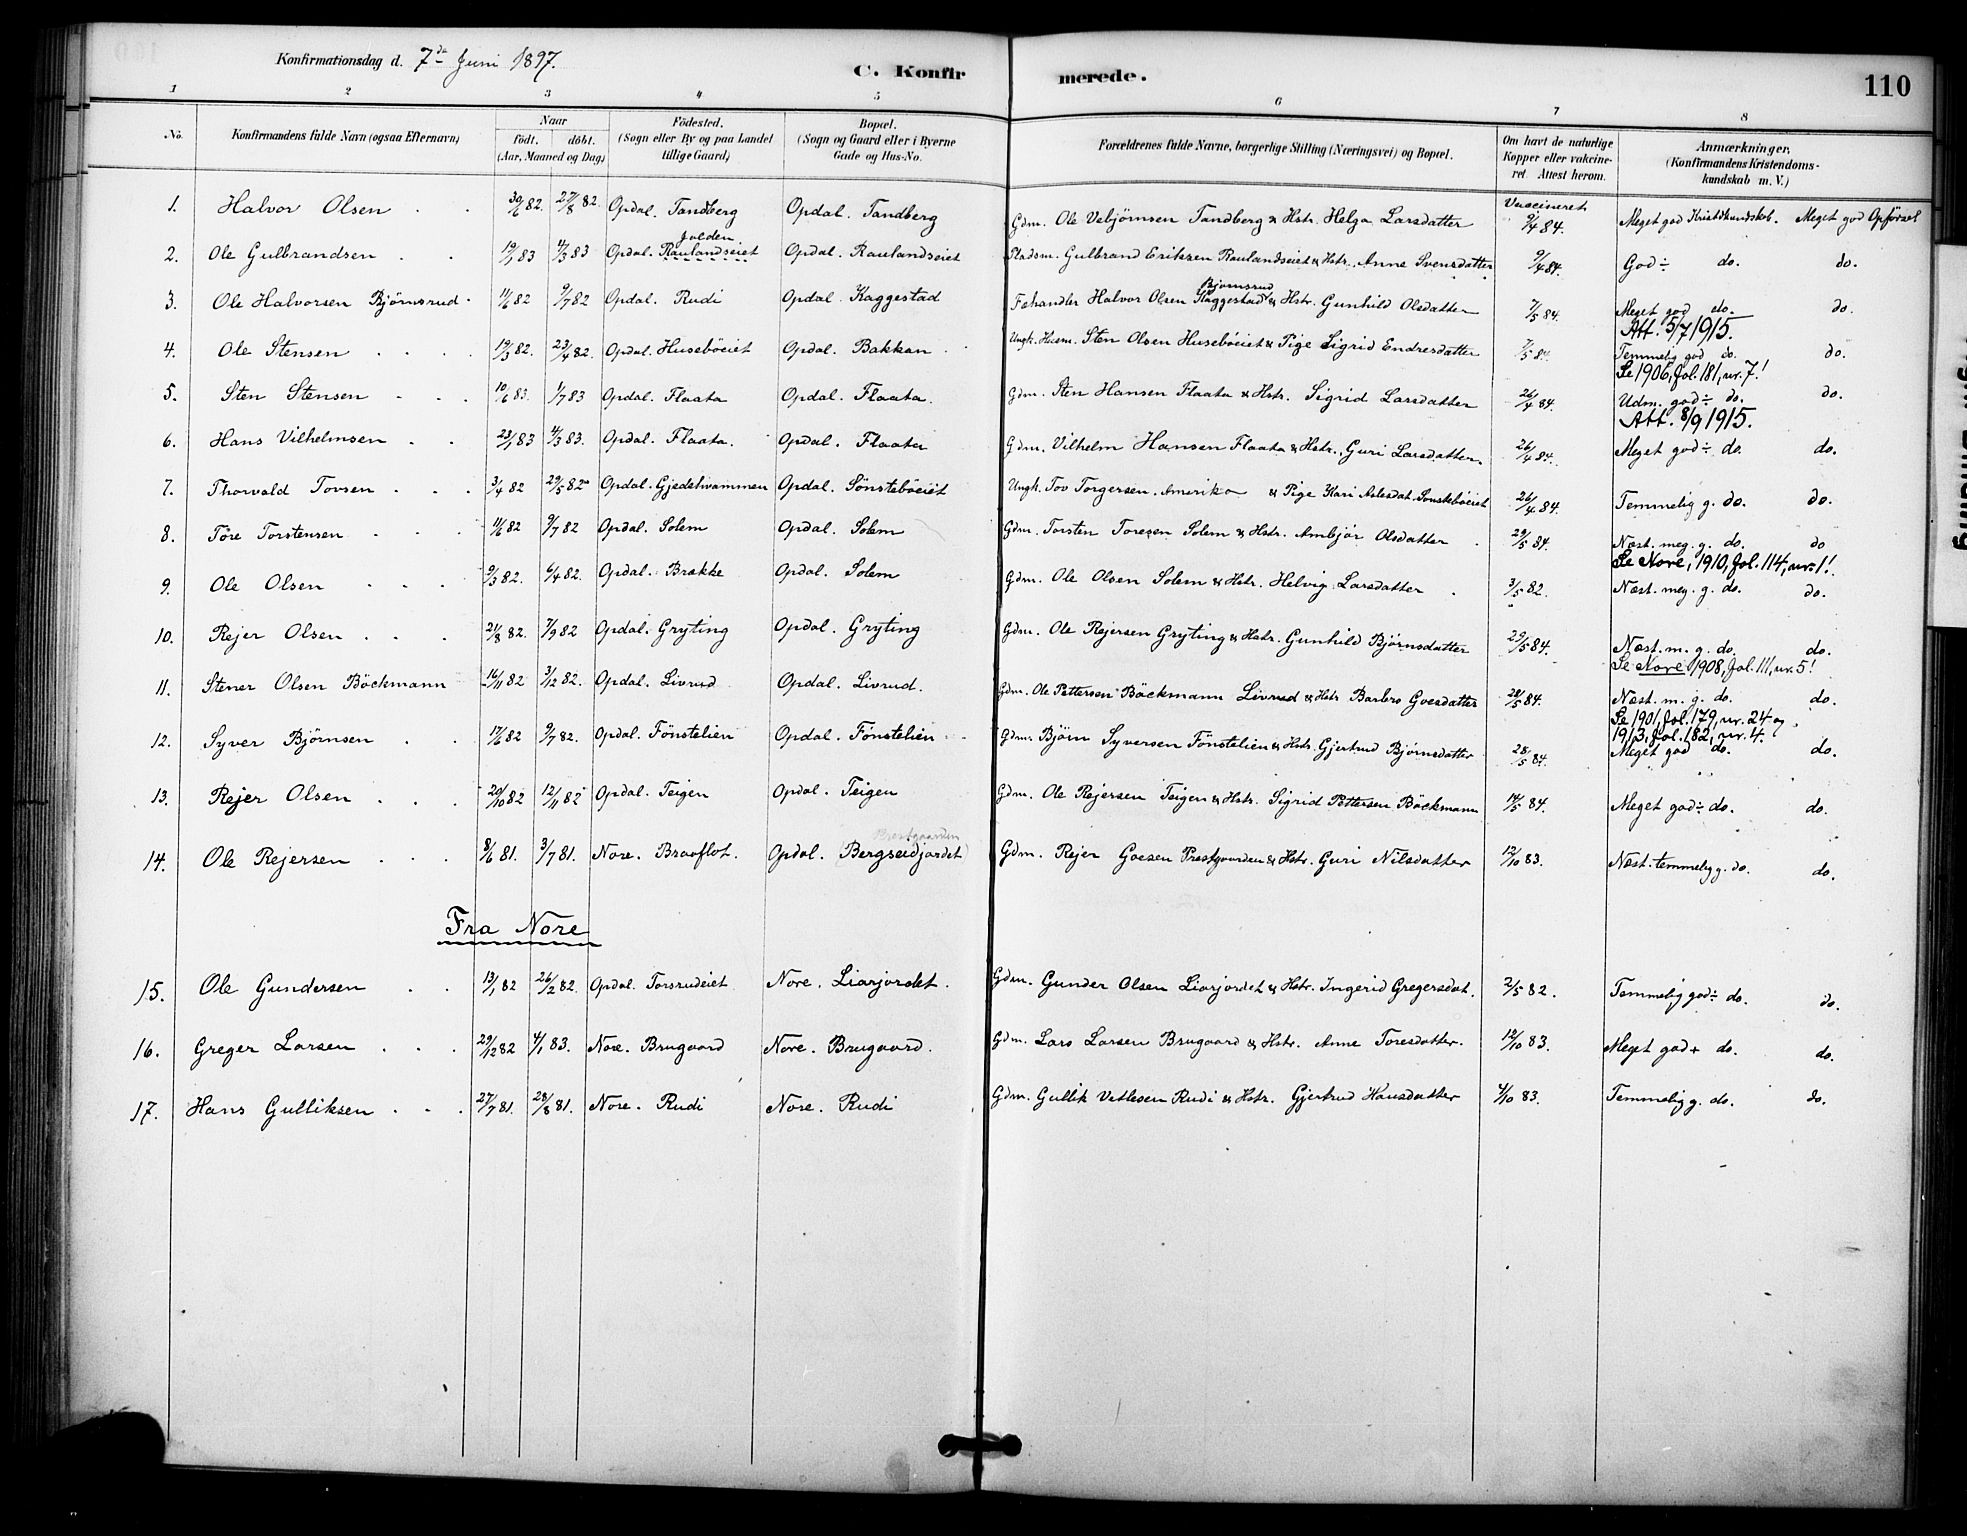 Konfirmationsdag d. 7de Juni 1897.
C. Konfirmerede.
110
1 2 3 4 5 6 7 8
No. Konfirmandens fulde Navn (ogsaa Efternavn) Naar födt. döbt. (Aar, Maaned og Dag) Födested. (Sogn eller By og paa Landet tillige Gaard) Bopæl. (Sogn og Gaard eller i Byerne Gade og Hus-No. Forældrenes fulde Navne, borgerlige Stilling (Næringsvei) og Bopæl. Om havt de naturlige Kopper eller vakcineret. Attest herom. Anmærkninger. (Konfirmandens Kristendomskundskab m. V.)
Vaccineret
1. Halvor Olsen 30/6 82. 27/8 82. Opdal. Tandberg Opdal. Tandberg Gdm. Ole Vebjörnsen Tandberg & Hstr. Helga Larsdatter 9/4 84. Meget god Kristdkundskab. Meget god Opförsel
Jolden
2. Ole Gulbrandsen 19/1 83 4/3 83 Opdal. Raulandseiet Opdal. Raulandseiet Pladsm. Gulbrand Eriksen Raulandseiet & Hstr. Anne Svensdatter 9/4 84. God ÷ do. do.
Bjørnsrud
3. Ole Halvorsen Björnsrud 11/6 82 9/7 82 Opdal. Rudi Opdal. Kaggestad Fehandler Halvor Olsen Kaggestad & Hstr. Gunhild Olsdatter 7/5 84. Meget god do. do.
Att. 5/7 1915.
4. Ole Stensen 19/3 82. 23/4 82. Opdal. Huseböeiet Opdal. Bakkan Ungk. Husm. Sten Olsen Huseböeiet & Pige Sigrid Endresdatter 7/5 84. Temmelig god do. do.
Se 1906, fol. 181, nr. 7!
5. Sten Stensen 10/6 83. 1/7 83 Opdal. Flaata Opdal. Flaata. Gdm. Sten Hansen Flaata & Hstr. Sigrid Larsdatter 26/4 84. Udm. god ÷ do. do.
Att. 8/9 1915.
6. Hans Vilhelmsen 23/1 83 4/3 83. Opdal. Flaata. Opdal. Flaata Gdm. Vilhelm Hansen Flaata & Hstr. Guri Larsdatter. 26/4 84. Meget god ÷ do. do.
7. Thorvald Tovsen 3/4 82 29/5 82 Opdal. Gjedehvammen Opdal. Sönsteböeiet Ungk. Tov Torgersen. Amerika & Pige Kari Aslesdat. Sönsteböeiet 26/4 84. Temmelig g. do. do.
8. Töre Torstensen 11/6 82 9/7 82 Opdal. Solem Opdal. Solem Gdm. Torsten Toresen Solem & Hstr. Ambjör Olsdatter 29/5 84. Næst. meg. g. do. do
Se Nore, 1910, fol. 114, nr. 1!
9. Ole Olsen 9/3 82. 6/4 82. Opdal. Brække Opdal. Solem Gdm. Ole Olsen Solem & Hstr. Helvig Larsdatter 3/5 82. Næst. meg. g. do. do.
10. Rejer Olsen 21/8 82. 7/9 82 Opdal. Gryting Opdal. Gryting Gdm. Ole Rejersen Gryting & Hstr. Gunhild Björnsdatter 29/5 84. Næst. m. g. do. do.
Se Nore 1908, fol. 111, nr. 5!
11. Stener Olsen Böckmann 16/11 82 3/12 82. Opdal. Livrud Opdal. Livrud. Gdm. Ole Pettersen Böckmann Livrud & Hstr Barbro Goesdatter 28/5 84. Næst m. g. do. do.
Se 1901, fol. 179, nr. 24 og
1913, fol. 182, nr. 4.
12. Syver Björnsen 17/6 82 9/7 82. Opdal. Fönstelien Opdal. Fönstelien Gdm. Björn Syversen Fönstelien & Hstr. Gjertrud Björnsdatter 28/5 84. Meget god do. do.
13. Rejer Olsen 20/10 82 12/11 82 Opdal. Teigen Opdal. Teigen Gdm. Ole Rejersen Teigen & Hstr. Sigrid Pettersen Böckmann 14/5 84. Meget god ÷ do. do.
Prestgaarden
14. Ole Rejersen 8/6 81. 3/7 81. Nore. Braaflot. Opdal. Bergseidjordet Gdm. Rejer Goesen Prestgaarden & Hstr. Guri Nilsdatter 12/10 83. Næst. temmelig g. do. do.
Fra Nore
15. Ole Gundersen 13/1 82 26/2 82. Opdal. Torsrudeiet Nore. Liarjordet. Gdm. Gunder Olsen Liarjordet & Hstr. Ingerid Gregersdat. 2/5 82. Temmelig god ÷ do. do.
16. Greger Larsen 29/12 82 4/1 83. Nore. Brugaard Nore. Brugaard. Gdm. Lars Larsen Brugaard & Hstr. Anne Toresdatter. 12/10 83. Meget god + do. do.
17. Hans Gulliksen 27/7 81. 28/8 81. Nore. Rudi Nore. Rudi Gdm. Gullik Vetlesen Rudi & Hstr. Gjertrud Hansdatter 4/10 83. Temmelig g. do. do.